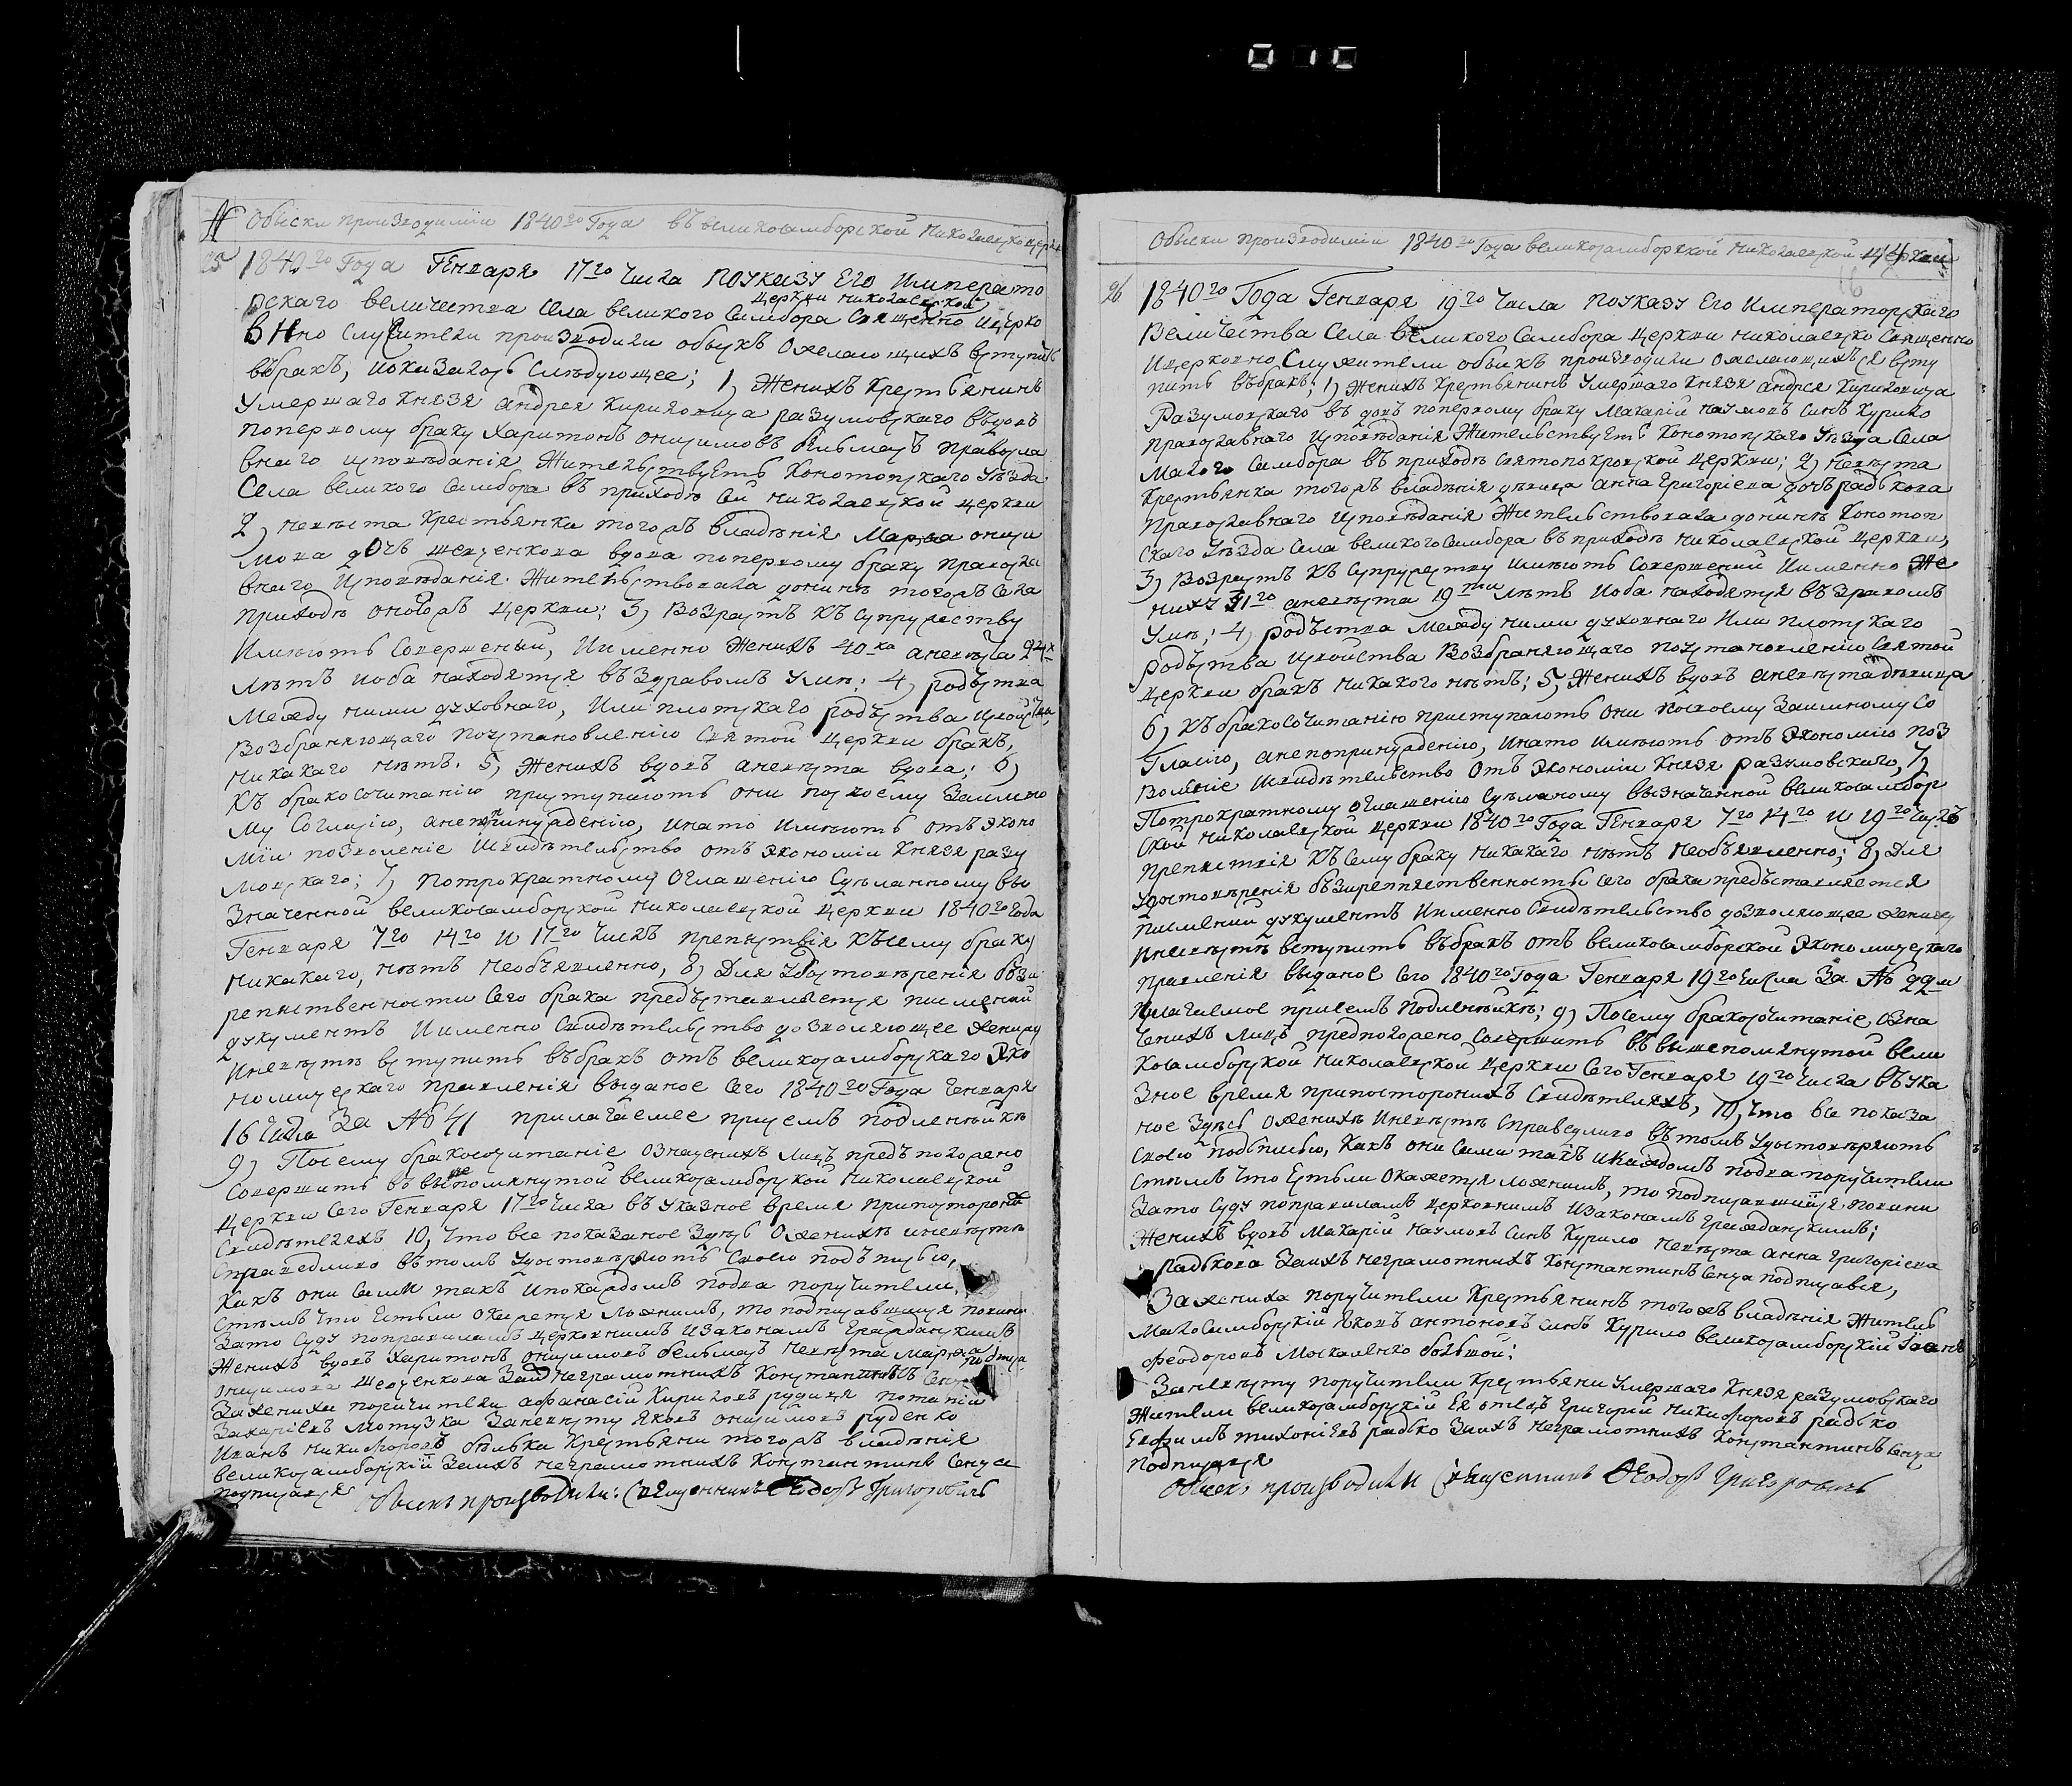 № Обыски произходимiи 1840го Года въ великосамборской Николаевско церкв
25 1840го Года Генваря 17го Числа ПОУказу Его Императо
рскаго величества Села великого Самбора церкви николаевской Священно ицерко
вНно Служители произходили обыскъ Ожелающихъ вступить
вбракъ, иоказалось Слѣдующее; 1) Женихъ Крестьянинъ
Умершаго Князя андрея Кириловича разумовскаго вдовъ
поперному браку Харитонъ онисимовъ бѣльмаъ Правосла
внаго исповѣданiя Жительствуетъ Конотопскаго Уѣзда
Села великого Самбора въ приходѣ Сей николаевской церкви
2) Невѣста Крестьянка тогожъ владѣнiя Марѳа ониси
мова дочъ шевченкова вдова поперному браку Правосла
внаго Исповѣданiя. Жительствовала донинѣ тогожъ Села
Приходѣ оногожъ церкви; 3) Возрастъ къ супружеству
Имѣютъ Совершеный, Именно Женихъ 40ка аневѣста 24х
лѣтъ иоба находятся въ здравомъ умѣ; 4) родства
Между ними духовнаго, Или плотскаго родства исвойства,
Возбраняющаго поустановленiю Святой церкви бракъ,
никакаго нѣтъ. 5) Женихъ вдовъ аневѣста вдова; 6)
Къ бракосочитанiю приступаютъ они посвоему Заимно
му Согласiю, анепринужденiю, инато имѣютъ отъ эконо
мiи позволенiе исвидѣтельство отъ экономiи Князя разу
мовскаго; 7) Потрократному оглашенiю Сдѣланному вы
Значенной великосамборской николаевской церкви 1840го Года
Генваря 7го 14го и 17го Числъ препятствiя Къ сему браку
никакаго, нѣтъ необъявленно, 8) Для Удостовѣренiя безп
репятственности Сего брака предъставляется писменый
документъ Именно Свидѣтельство дозволяющее жениху
Иневѣстѣ вступить въбракъ отъ великосамборскаго эко
номическаго правленiя выданое Сего 1840го Года Генваря
16 Числа За № 41 прилагаемее присемъ подленьникѣ
9) Посему бракосочитанiе Означенихъ лицъ предъположено
Совершить въ вышепомянутой великосамборской николаевской
Церкви Сего Генваря 17го Числа въ Указное время припосторонѣ
Свидѣтеляхъ 10, Что все показаное Здѣсь Оженихѣ иневѣстѣ
Справедливо въ томъ удостовѣряютъ Своею подъписью,
Какъ они Сами такъ ипокаждомъ подва поручители
Стѣмъ Что Естьли окажется ложнимъ, то подписавшиися повини
Зато Суду поправиламъ церковнимъ изаконамъ Гражданскимъ
Женихъ вдовъ Харитонъ онисимовъ бѣльмаъ невѣста Марѳа
онисимова шевченкова За неграмотнихъ Константинъ Сенча
Зажениха поручители афанасiй Кириловъ рудиця потапiй
Захарiевъ Мотузка Заневѣсту яковъ онисимовъ руденко
Иванъ никифоровъ бѣлька Крестьяни тогожъ владѣнiя
великосамборскiй Заихъ неграмотнихъ Константинъ Сенча
подписался Обыскъ производили: Священникъ Ѳеодоръ Григоровичъ
Обыски произходимiи 1840го Года великосамборской николаевской церкви
16
26 1840го Года Генваря 19го Числа ПОУказу Его Императорскаго
Величества Села великого Самбора церкви николаевско Священно
ицерковно Служители обыскъ произходили ожелающихъся всту
пить въбракъ; 1) Женихъ Крестьянинъ Умершаго Князя андрея Кириловича
Разумовскаго вдовъ поперному браку Макарiй наумовъ Синъ Курило
православнаго исповѣданiя Жительствуетъ Конотопскаго Уѣзда Села
Малого Самбора въ приходѣ Святопокровской церкви; 2) невѣста
Крестьянка тогожъ владѣнiя дѣвица анна Григорiева дочъ радькова
Православнаго исповѣданiя Жительствовала донинѣ Конотоп
скаго Уѣзда Села великого Самбора въ приходѣ николаевской церкви,
3) Возрастъ къ супружеству имѣютъ Совершений Именно Же
нихъ 31го аневѣста 19ти лѣтъ иоба находятся въ здравомъ
умѣ; 4) родъства между ними духовнаго Или плотскаго
родъства исвойства возбраняющаго поустановленiю Святой
церкви бракъ никакого нѣтъ; 5) Женихъ вдовъ аневѣста дѣвица
6) Къ бракосочитанiю приступаютъ они посвоему Заимному Со
Гласiю, анепопринужденiю, инато имѣютъ отъ экономiю поз
воленiе исвидѣтельство отъ экономiи Князя разумовскаго, 7)
Потрократному оглашенiю Сдѣланому вызначенной великосамбор
ской николаевской церкви 1840го Года Генваря 7го 14го и 19го Числъ
препятствiя къ Сему браку никакаго нѣтъ необъявленно; 8) Для
удостовѣренiя бѣзпрепятственность Сего брака предъставляется
писмений документъ Именно Свидѣтельство дозволяющее жениху
иневѣстѣ вступить въбракъ отъ великосамборской экономическаго
правленiя выданое Сего 1840го Года Генваря 19го Числа За №
прилагаемое присемъ подленьникѣ; 9) Посему бракосочитанiе, Озна
Ченихъ лицъ предположено Совершить въ вышепомянутой вели
косамборской николаевской церкви Сего Генваря 19го Числа въ Ука
зное время припосторонихъ Свидѣтеляхъ, 10, Что все показа
ное Здѣсь Оженихѣ Иневѣстѣ Справедливо въ томъ Удостовѣряютъ
Своею подписью, Какъ они Сами такъ ипокаждомъ подва поручители
Стѣмъ Что Естьли Окажется ложнимъ, то подписавшиiйся повини
Зато Суду поправиламъ церковнимъ Изаконамъ Гражданскимъ;
Женихъ вдовъ Макарiй наумовъ Синъ Курило невѣста анна Григорiева
радькова Заихъ неграмотнихъ Константинъ Сенча подписався,
Зажениха поручители Крестьянинъ тогожъ владѣнiя Житель
малосамборскiй яковъ антоновъ Синъ Курило великосамборскiй
Феодоровъ Москаленко большой;
Заневѣсту поручители Крестьяни умершаго Князя разумовскаго
Жители великосамборскiй Ея отецъ Григорiй никифоровъ радько
Евфимъ тихонiевъ радько Заихъ неграмотнихъ Константинъ Сенча
подписался
Обыскъ производили Священникъ Ѳеодоръ Григоровичъ